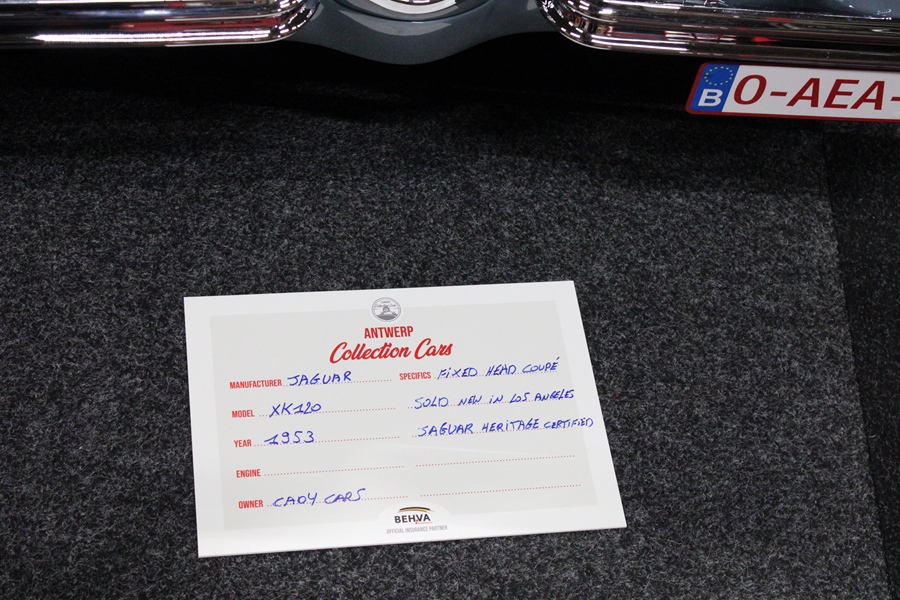 B O-AEA-
ANTWERP
Collection Cars
MANUFACTURER JAGUAR
SPECIFICS FIXED HEAD COUPÉ
MODEL XK120
SOLD NEW IN LOS ANGELES
YEAR 1953
JAGUAR HERITAGE CERTIFIED
ENGINE
OWNER CADY CARS
BEHVA
OFFICIAL INSURANCE PARTNER